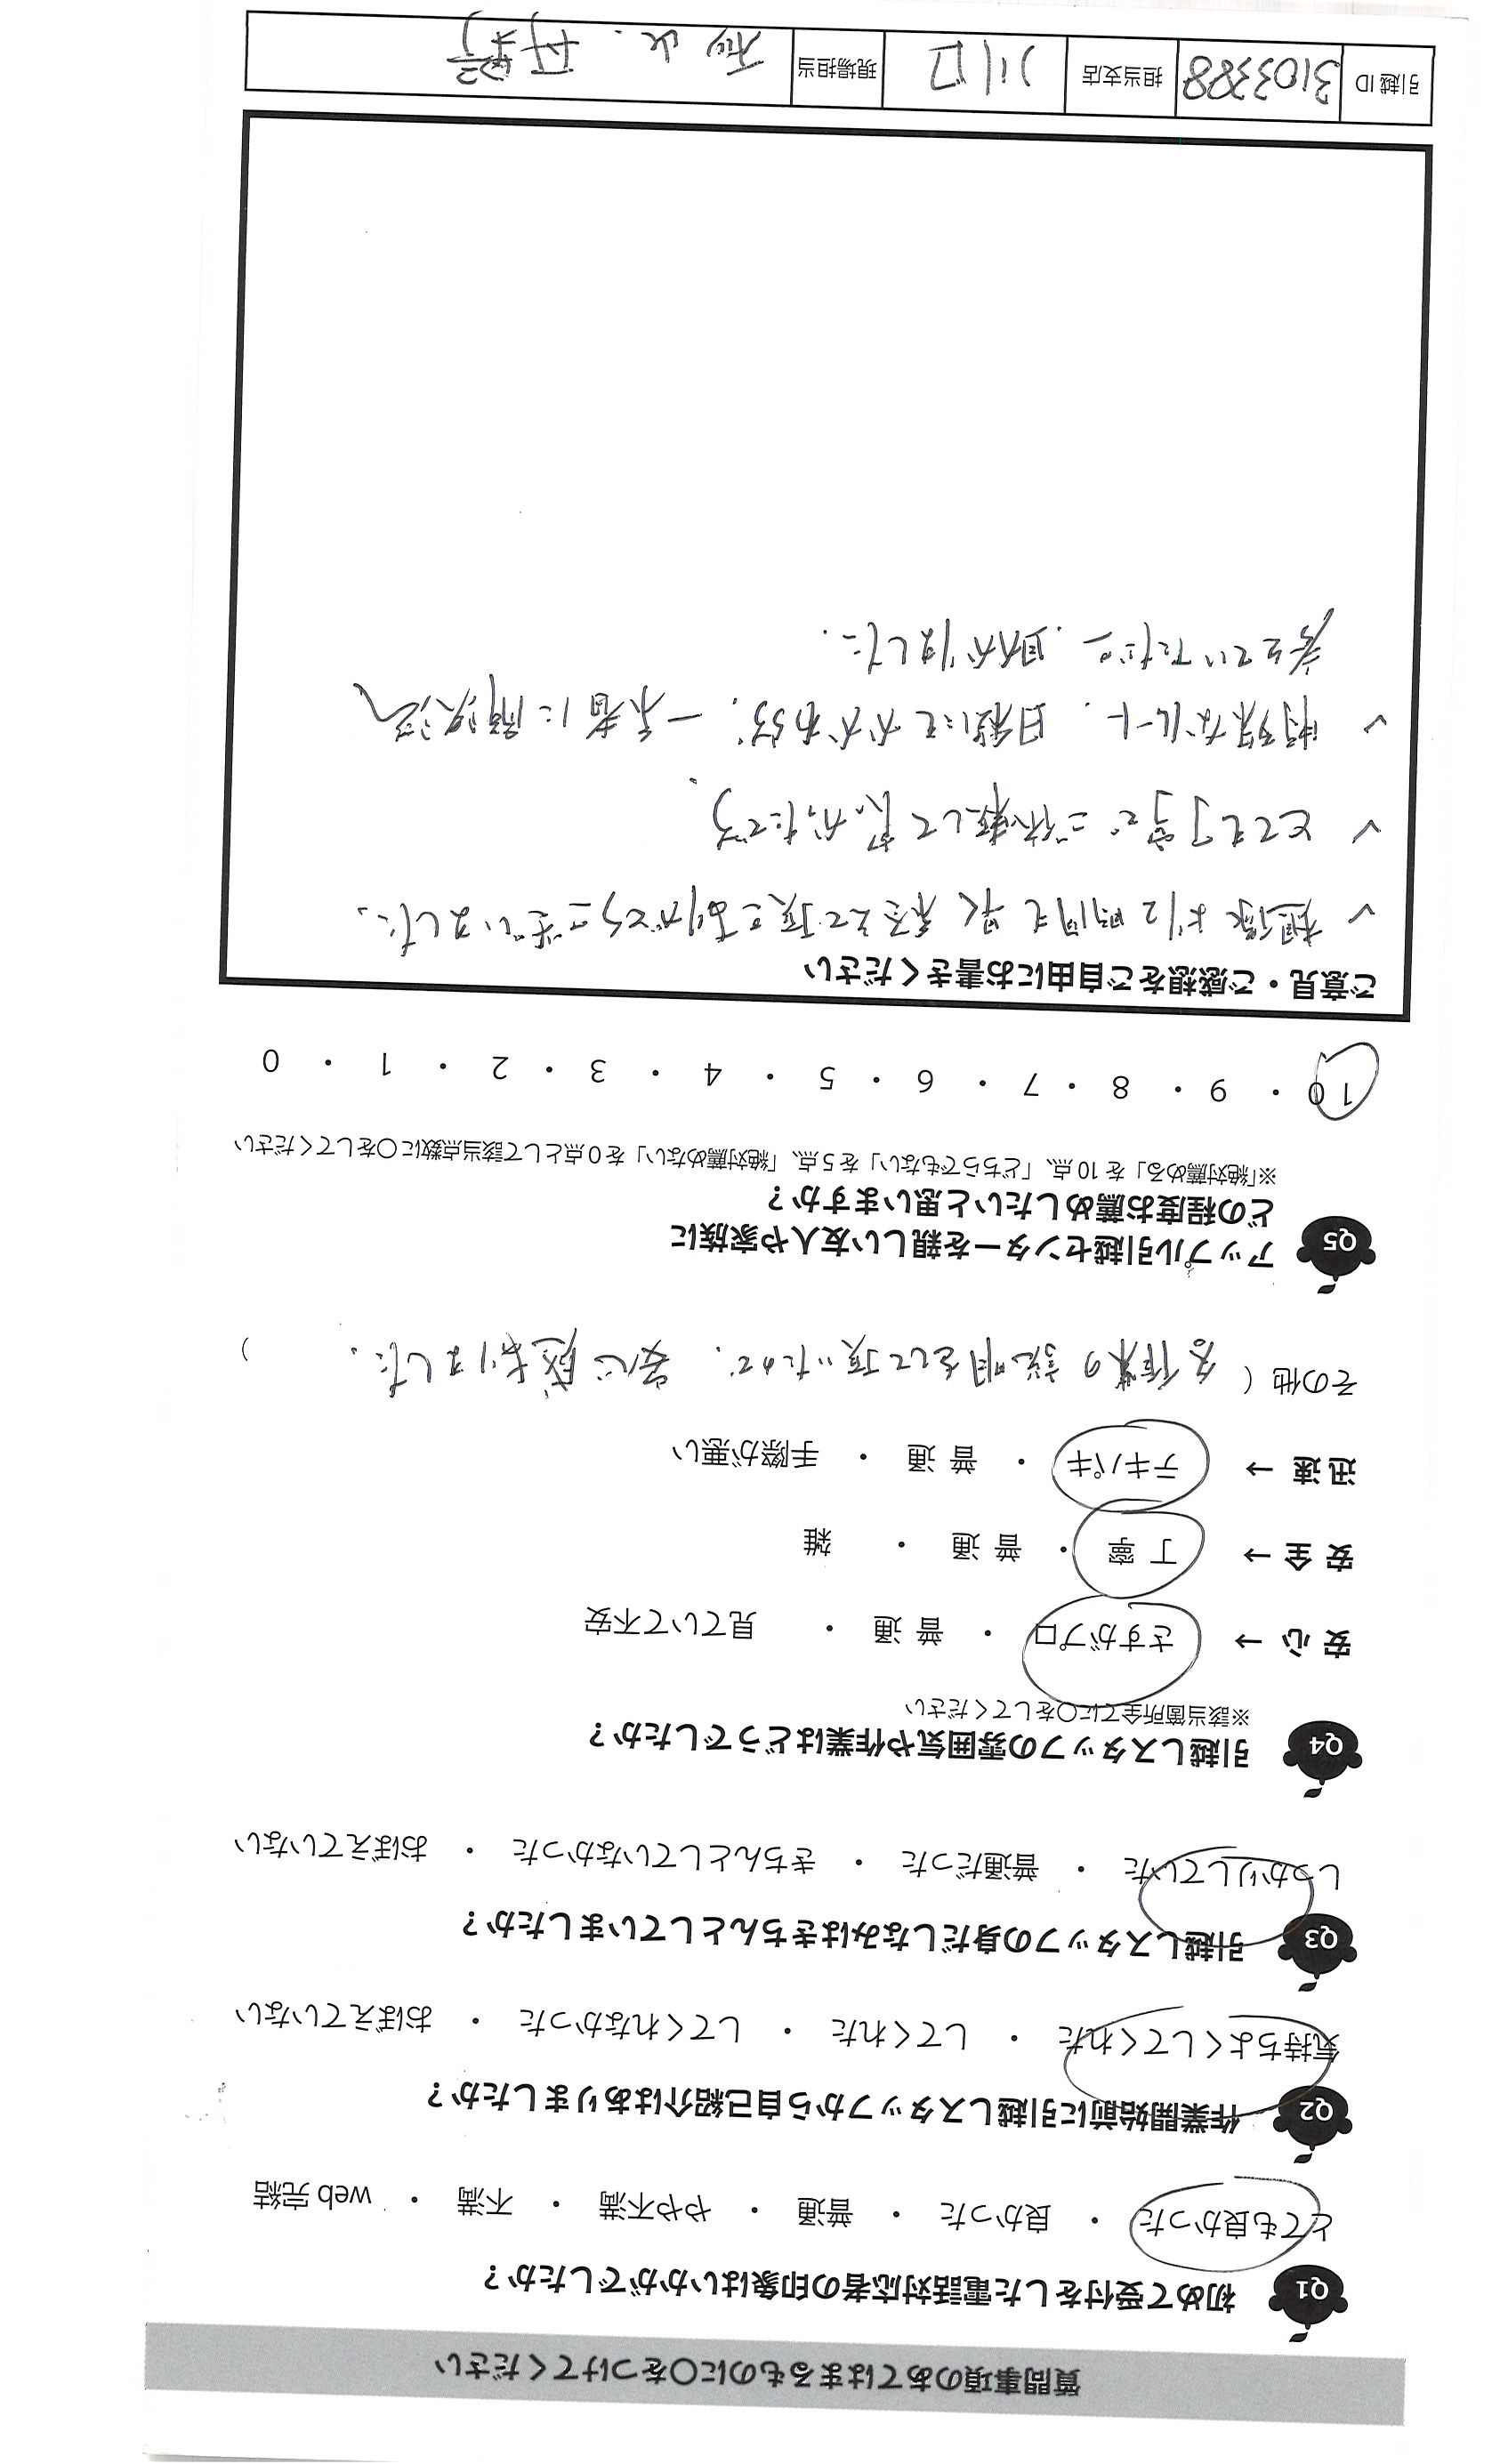 質問事項のあてはまるものに〇をつけてください
Q1 初めて受付をした電話対応者の印象はいかがでしたか？
とても良かった ・ 良かった ・ 普通 ・ やや不満 ・ 不満 ・ web完結
Q2 作業開始前に引越しスタッフから自己紹介はありましたか？
気持ちよくしてくれた ・ してくれた ・ してくれなかった ・ おぼえていない
Q3 引越しスタッフの身だしなみはきちんとしていましたか？
しっかりしていた ・ 普通だった ・ きちんとしていなかった ・ おぼえていない
Q4 引越しスタッフの雰囲気や作業はどうでしたか？
※該当箇所全てに〇をしてください
安心 → さすがプロ ・ 普通 ・ 見ていて不安
安全 → 丁寧 ・ 普通 ・ 雑
迅速 → テキパキ ・ 普通 ・ 手際が悪い
その他（ 各作業の説明をして頂いたので、安心感ありました。 ）
Q5 アップル引越センターを親しい友人や家族に
どの程度お薦めしたいと思いますか？
※「絶対薦める」を10点、「どちらでもない」を5点、「絶対薦めない」を0点として該当点数に〇をしてください
10 ・ 9 ・ 8 ・ 7 ・ 6 ・ 5 ・ 4 ・ 3 ・ 2 ・ 1 ・ 0
ご意見・ご感想をご自由にお書きください
✓ 想像より2時間も早く終えて頂きありがとうございました。
✓ とても丁寧でご依頼して良かったです。
✓ 特殊なルート、日程にもかかわらず、一緒に解決法
考えていただき、助かりました。
引越ID 3103388 担当支店 川口 現場担当